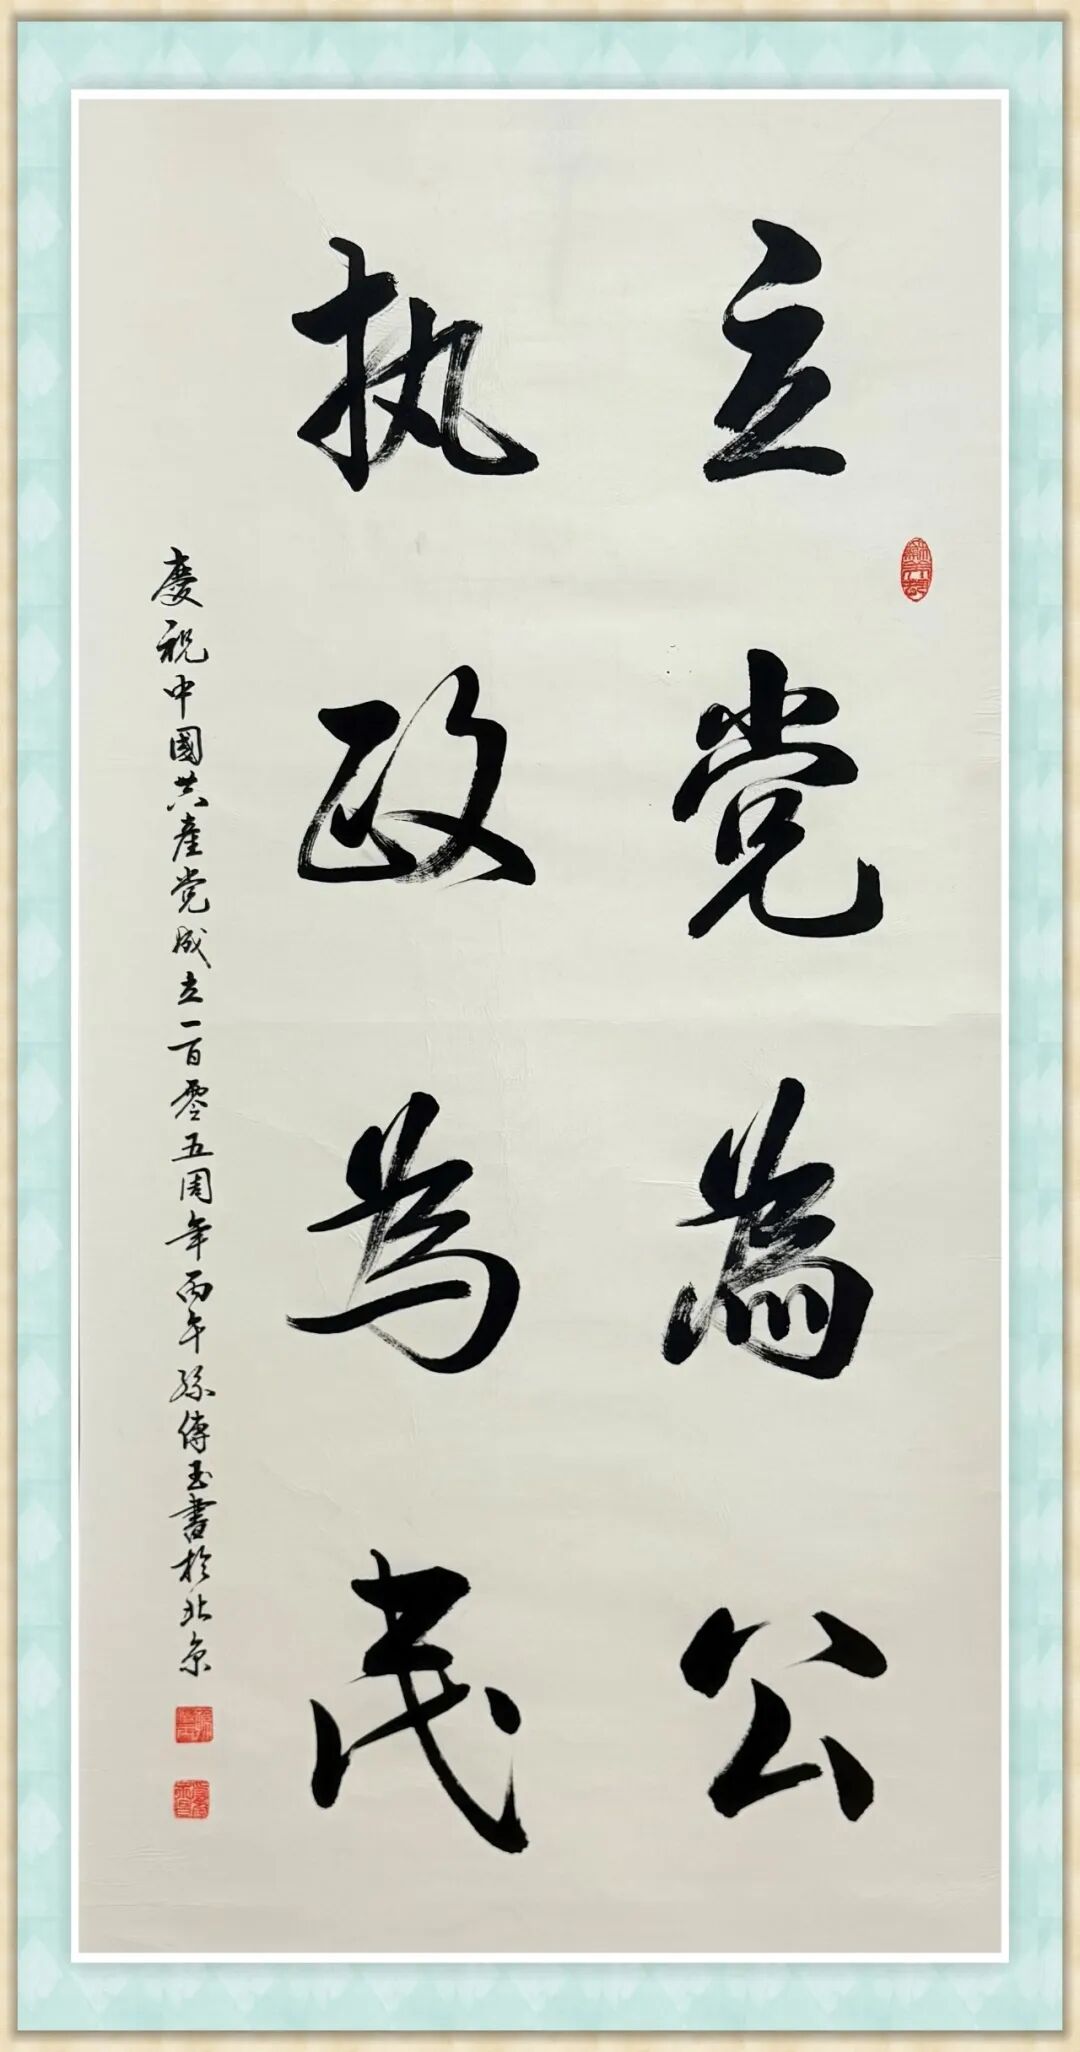 立党為公
执政为民
慶祝中國共產党成立一百零五周年丙午孫傳玉書於北京